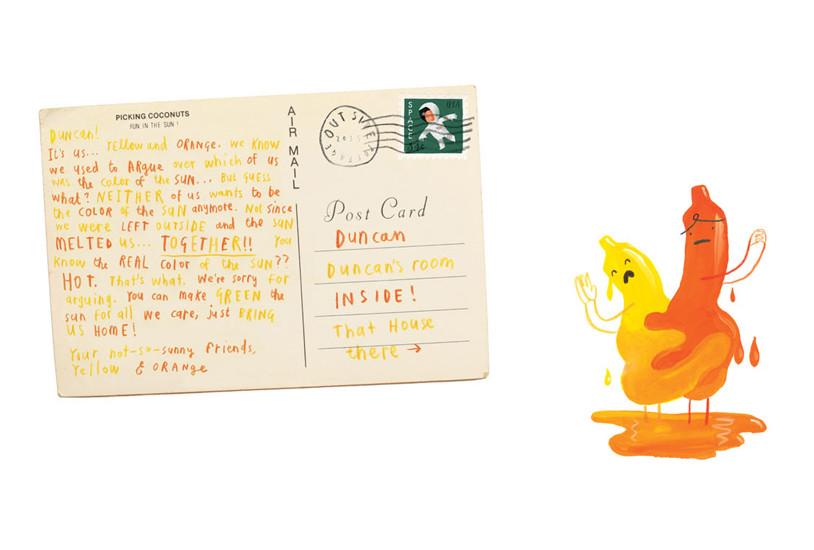 PICKING COCONUTS
FUN IN THE SUN!
Duncan!
It's us... Yellow and ORANGE. we know
we used to ARGUE over which of us
was the color of the SUN... But guess
what? NEITHER of us wants to be
the COLOR of the SUN anymore. Not since
we were LEFT OUTSIDE and the SUN
MELTED us... TOGETHER!! You
know the REAL color of the SUN??
HOT. That's what. We're sorry for
arguing. You can make GREEN the
sun for all we care, just BRING
US HOME!
Your not-so-sunny friends,
Yellow & ORANGE
AIR MAIL
OUTSIDE
SPACE
USA
Post Card
Duncan
Duncan's room
INSIDE!
That House
there →